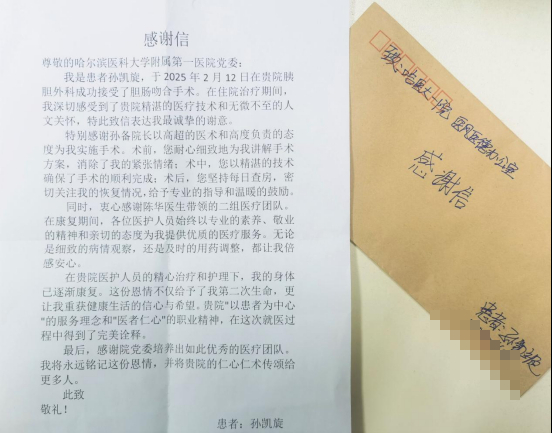 感谢信
尊敬的哈尔滨医科大学附属第一医院党委：
我是患者孙凯旋，于 2025 年 2 月 12 日在贵院胰
胆外科成功接受了胆肠吻合手术。在住院治疗期间，
我深切感受到了贵院精湛的医疗技术和无微不至的人
文关怀，特此致信表达我最诚挚的谢意。
特别感谢孙备院长以高超的医术和高度负责的态
度为我实施手术。术前，您耐心细致地为我讲解手术
方案，消除了我的紧张情绪；术中，您以精湛的技术
确保了手术的顺利完成；术后，您坚持每日查房，密
切关注我的恢复情况，给予专业的指导和温暖的鼓励。
同时，衷心感谢陈华医生带领的二组医疗团队。
在康复期间，各位医护人员始终以专业的素养、敬业
的精神和亲切的态度为我提供优质的医疗服务。无论
是细致的病情观察，还是及时的用药调整，都让我倍
感安心。
在贵院医护人员的精心治疗和护理下，我的身体
已逐渐康复。这份恩情不仅给予了我第二次生命，更
让我重获健康生活的信心与希望。贵院"以患者为中心
"的服务理念和"医者仁心"的职业精神，在这次就医过
程中得到了完美诠释。
最后，感谢院党委培养出如此优秀的医疗团队。
我将永远铭记这份恩情，并将贵院的仁心仁术传颂给
更多人。
此致
敬礼！
患者：孙凯旋
致：哈医大一院 医风医德办公室
感谢信
患者：孙凯旋